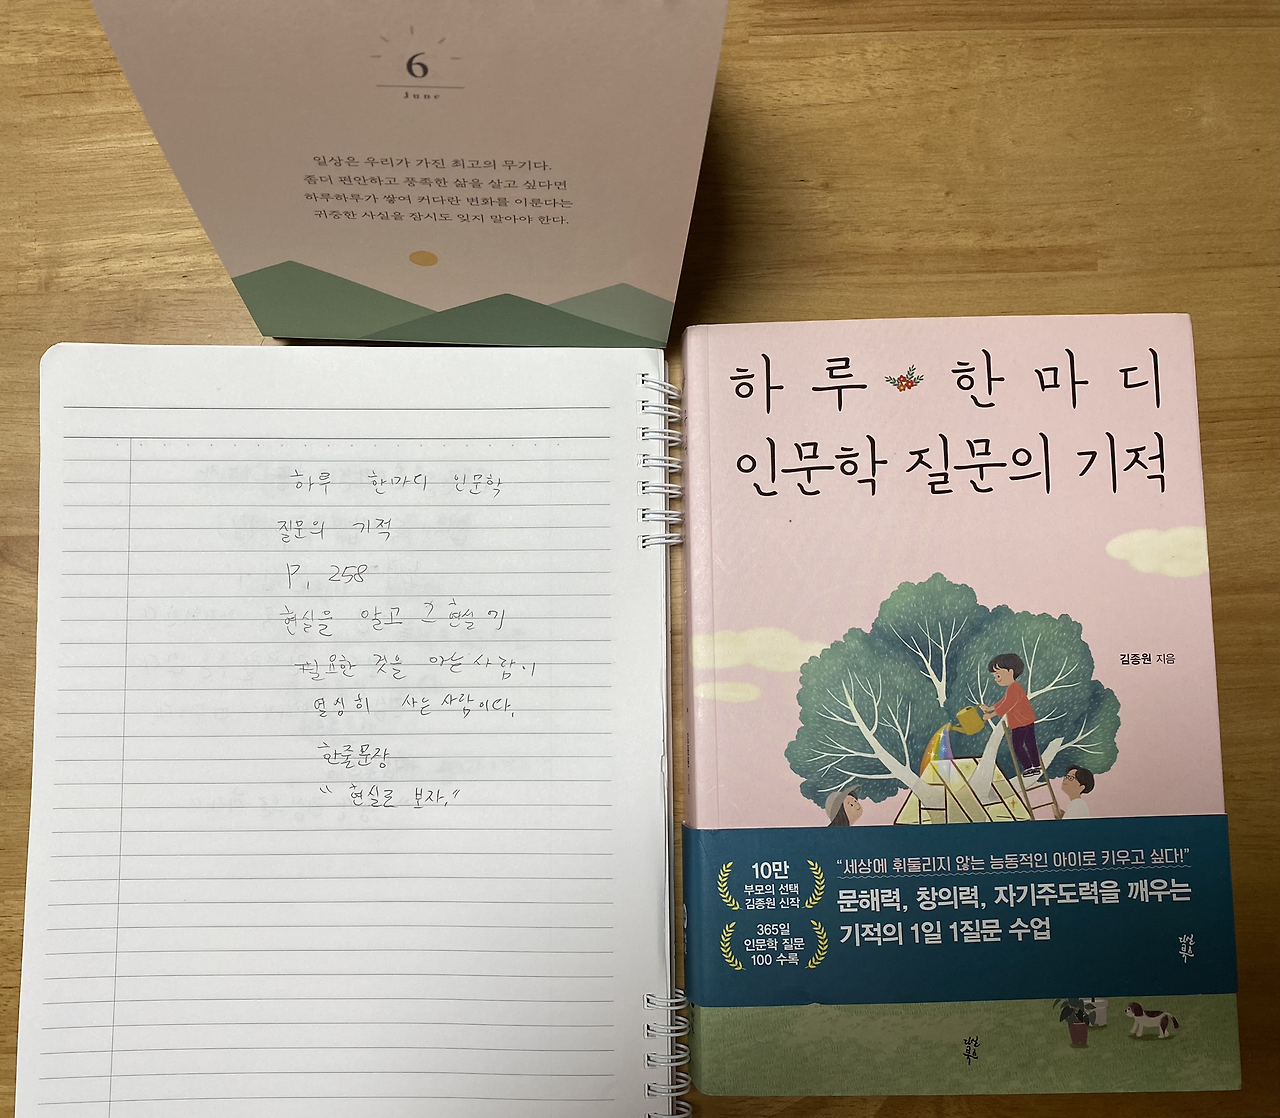 6
June
일상은 우리가 가진 최고의 무기다.
좀더 편안하고 풍족한 삶을 살고 싶다면
하루하루가 쌓여 커다란 변화를 이룬다는
귀중한 사실을 잠시도 잊지 말아야 한다.
하루 한마디 인문학
질문의 기적
P. 258
현실을 알고 그 현실기
필요한 것을 아는 사람이
열심히 사는 사람이다.
한줄문장
"현실로 보자."
하루 한마디
인문학 질문의 기적
김종원 지음
10만
부모의 선택
김종원 신작
365일
인문학 질문
100 수록
"세상에 휘둘리지 않는 능동적인 아이로 키우고 싶다!"
문해력, 창의력, 자기주도력을 깨우는
기적의 1일 1질문 수업
다산
북스
다산
북스